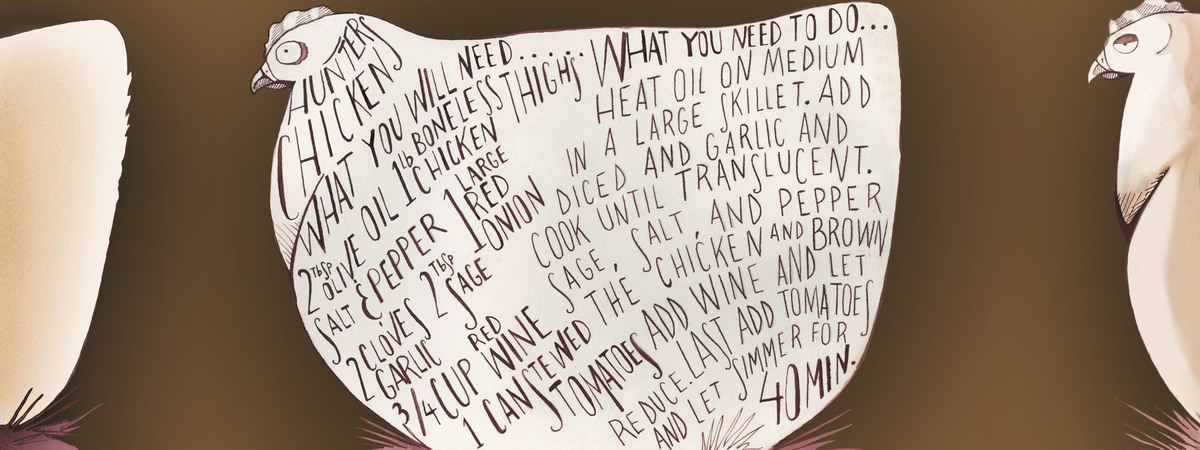 HUNTERS
CHICKEN
WHAT YOU WILL NEED......
1lb BONELESS THIGHS
CHICKEN
2 Tbsp OLIVE OIL
1 LARGE
RED
ONION
SALT & PEPPER
2 Tbsp SAGE
2 CLOVES
GARLIC
3/4 CUP RED WINE
1 CAN STEWED
TOMATOES
WHAT YOU NEED TO DO...
HEAT OIL ON MEDIUM
IN A LARGE SKILLET. ADD
DICED AND GARLIC AND
COOK UNTIL TRANSLUCENT.
SAGE, SALT, AND PEPPER
THE CHICKEN AND BROWN
ADD WINE AND LET
REDUCE. LAST ADD TOMATOES
AND LET SIMMER FOR
40 MIN.